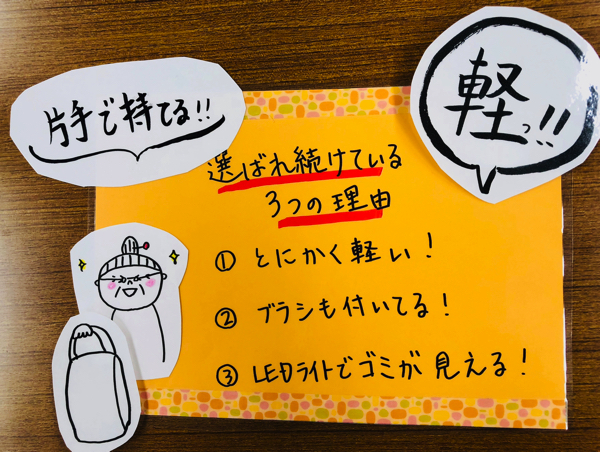 片手で持てる!!
軽っ!!
選ばれ続けている
3つの理由
① とにかく軽い!
② ブラシも付いてる!
③ LEDライトでゴミが見える!